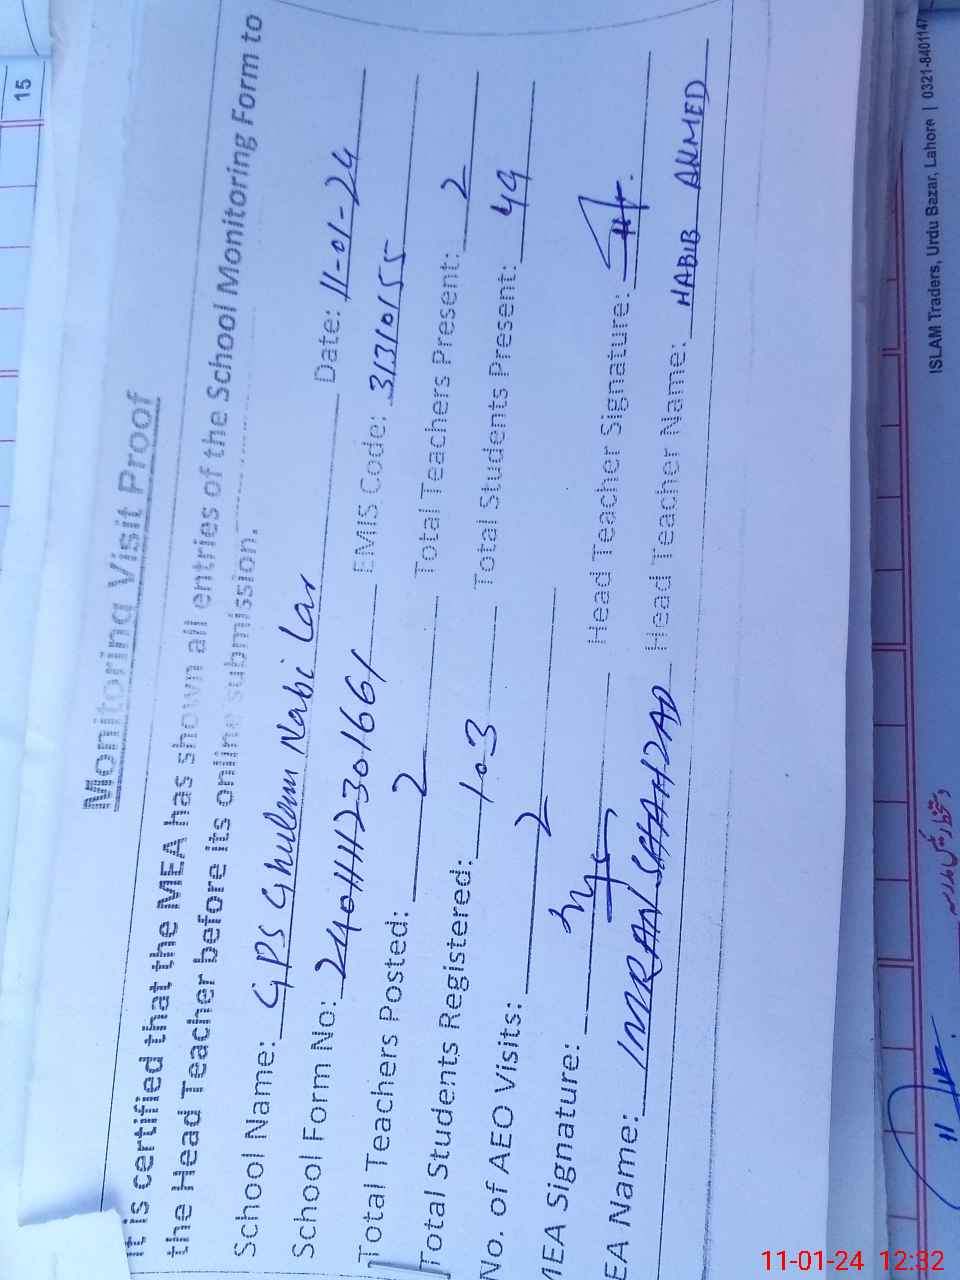 15
Monitoring Visit Proof
It is certified that the MEA has shown all entries of the School Monitoring Form to
the Head Teacher before its online submission.
School Name: GPS Ghulam Nabi Lar Date: 11-01-24
School Form No: EMIS Code: 31310155
Total Teachers Posted: 2 Total Teachers Present: 2
Total Students Registered: 103 Total Students Present: 49
No. of AEO Visits: 2
MEA Signature: Head Teacher Signature:
EA Name: IMRAN SHAHZAD Head Teacher Name: HABIB AHMED
ISLAM Traders, Urdu Bazar, Lahore | 0321-8401147
11-01-24 12:32